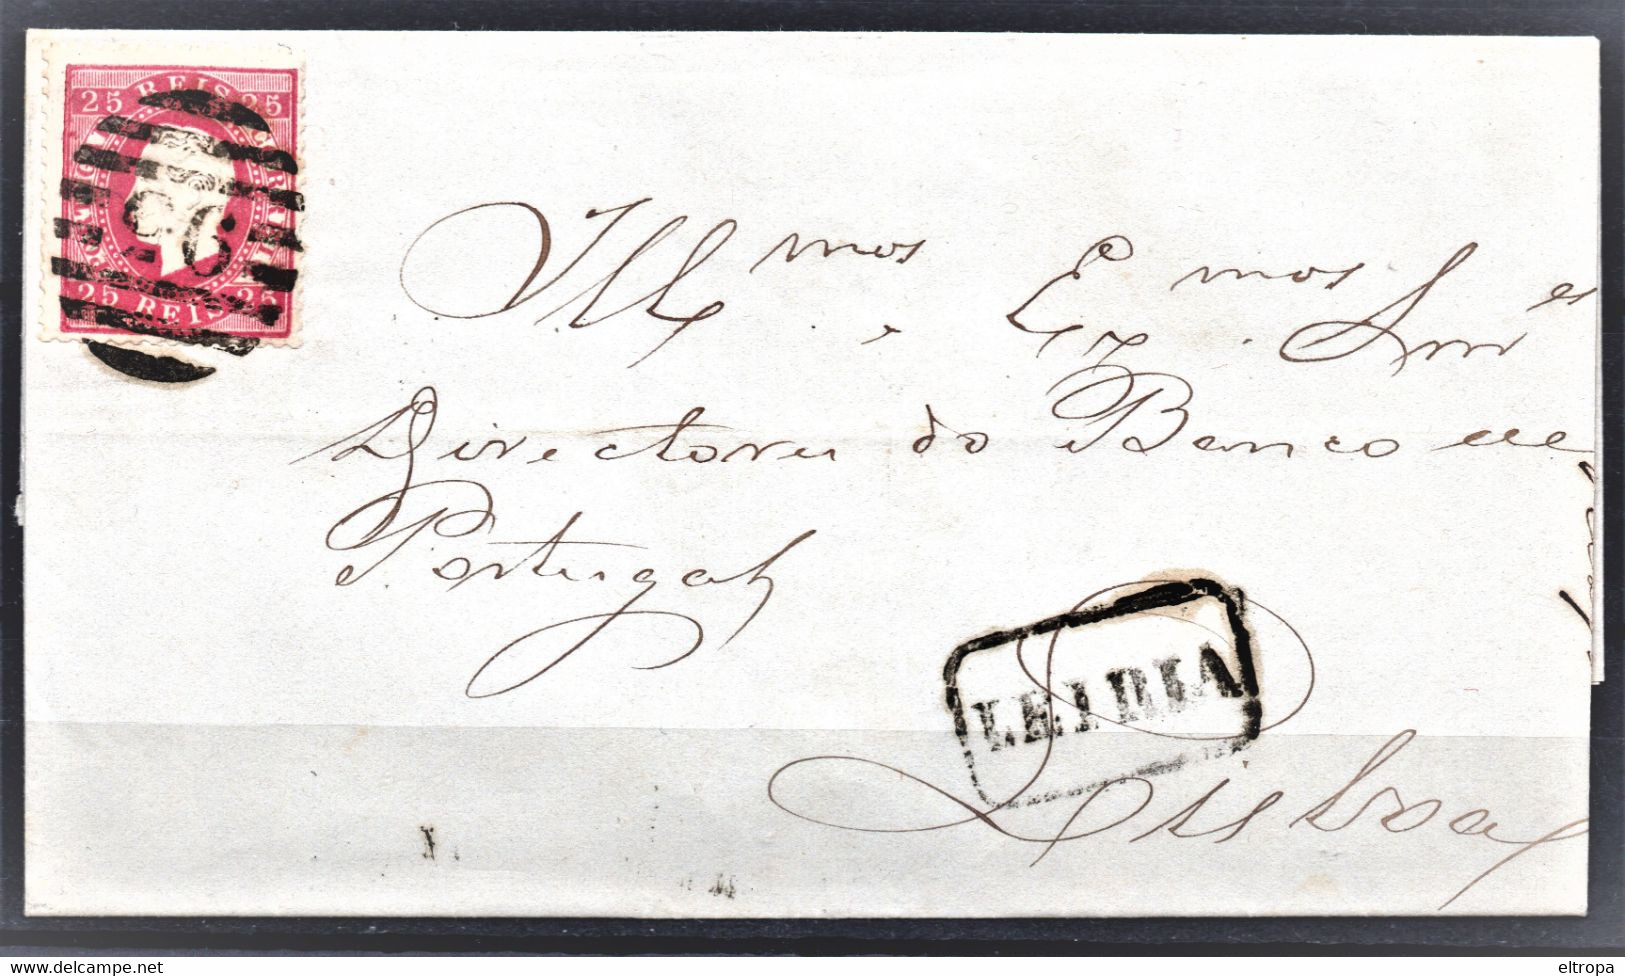 25 REIS 25
CORREIO
PORTUGAL
25 REIS 25
Ill.mos e Ex.mos Snr.es
Directores do Banco de
Portugal
LEIRIA
Lisboa
delcampe.net
eltropa